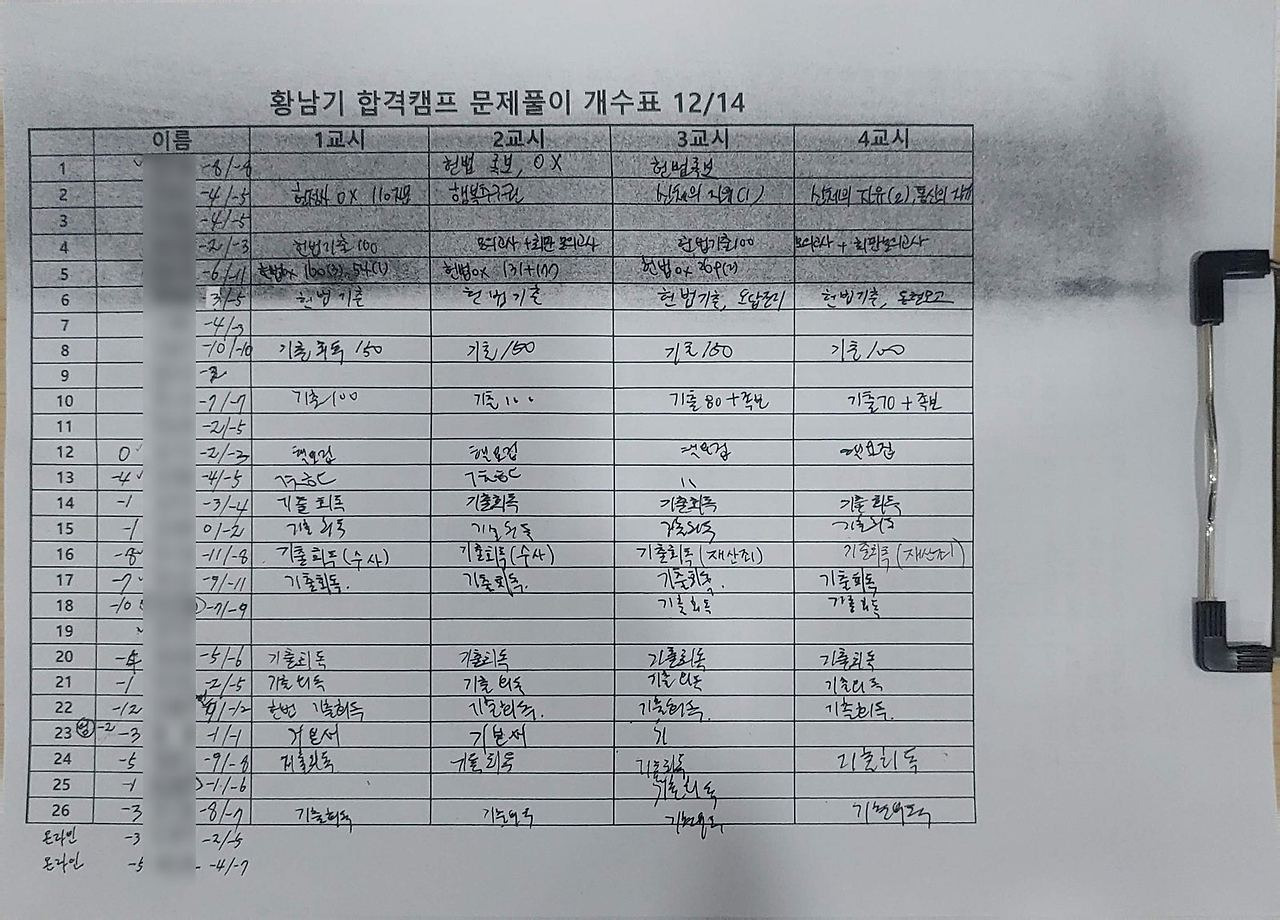 황남기 합격캠프 문제풀이 개수표 12/14
이름 1교시 2교시 3교시 4교시
1 -8/-8 헌법 족보, OX 헌법족보
2 -4/-5 OX 110지문 행복추구권 신체의 자유(1) 신체의 자유(2), 통신의 자유
3 -4/-5
4 -2/-3 헌법기출100 모의고사 + 회판모의고사 헌법기출100 모의고사 + 회판모의고사
5 -6/-11 헌법ox 160(3), 54(1) 헌법ox 131+177 헌법ox 269(2)
6 3/-5 헌법기출 헌법기출 헌법기출, 오답정리 헌법기출, 동형모고
7 -4/-3
8 -10/-10 기출 회독 150 기출 150 기출 150 기출 100
9
10 -7/-7 기출100 기출100 기출 80 + 족보 기출70 + 족보
11 -2/-5
12 0 -2/-3 핵요집 핵요집 핵요집 핵요집
13 -4 -4/-5 〃
14 -1 -3/-4 기출 회독 기출회독 기출회독 기출 회독
15 -1 0/-2 기출 회독 기출 회독 기출회독 기출회독
16 -8 -11/-8 기출회독(수사) 기출회독(수사) 기출회독(재산죄) 기출회독(재산죄)
17 -7 -9/-11 기출회독. 기출회독. 기출회독. 기출회독
18 -10 -7/-9 기출회독 기출회독
19
20 -5/-6 기출회독 기출회독 기출회독 기출회독
21 -1 -2/-5 기출회독 기출회독 기출회독 기출회독
22 -12 헌법 기출회독 기출회독. 기출회독. 기출회독.
23 -2 -3 -1/-1 기본서 기본서
24 -5 -9/-8 기출회독 기출회독 기출회독 기출회독
25 -1 -1/-6 기출회독
26 -3 -8/-7 기출회독 기출회독 기출회독 기출회독
온라인 -3 -2/-5
온라인 -5 -4/-7